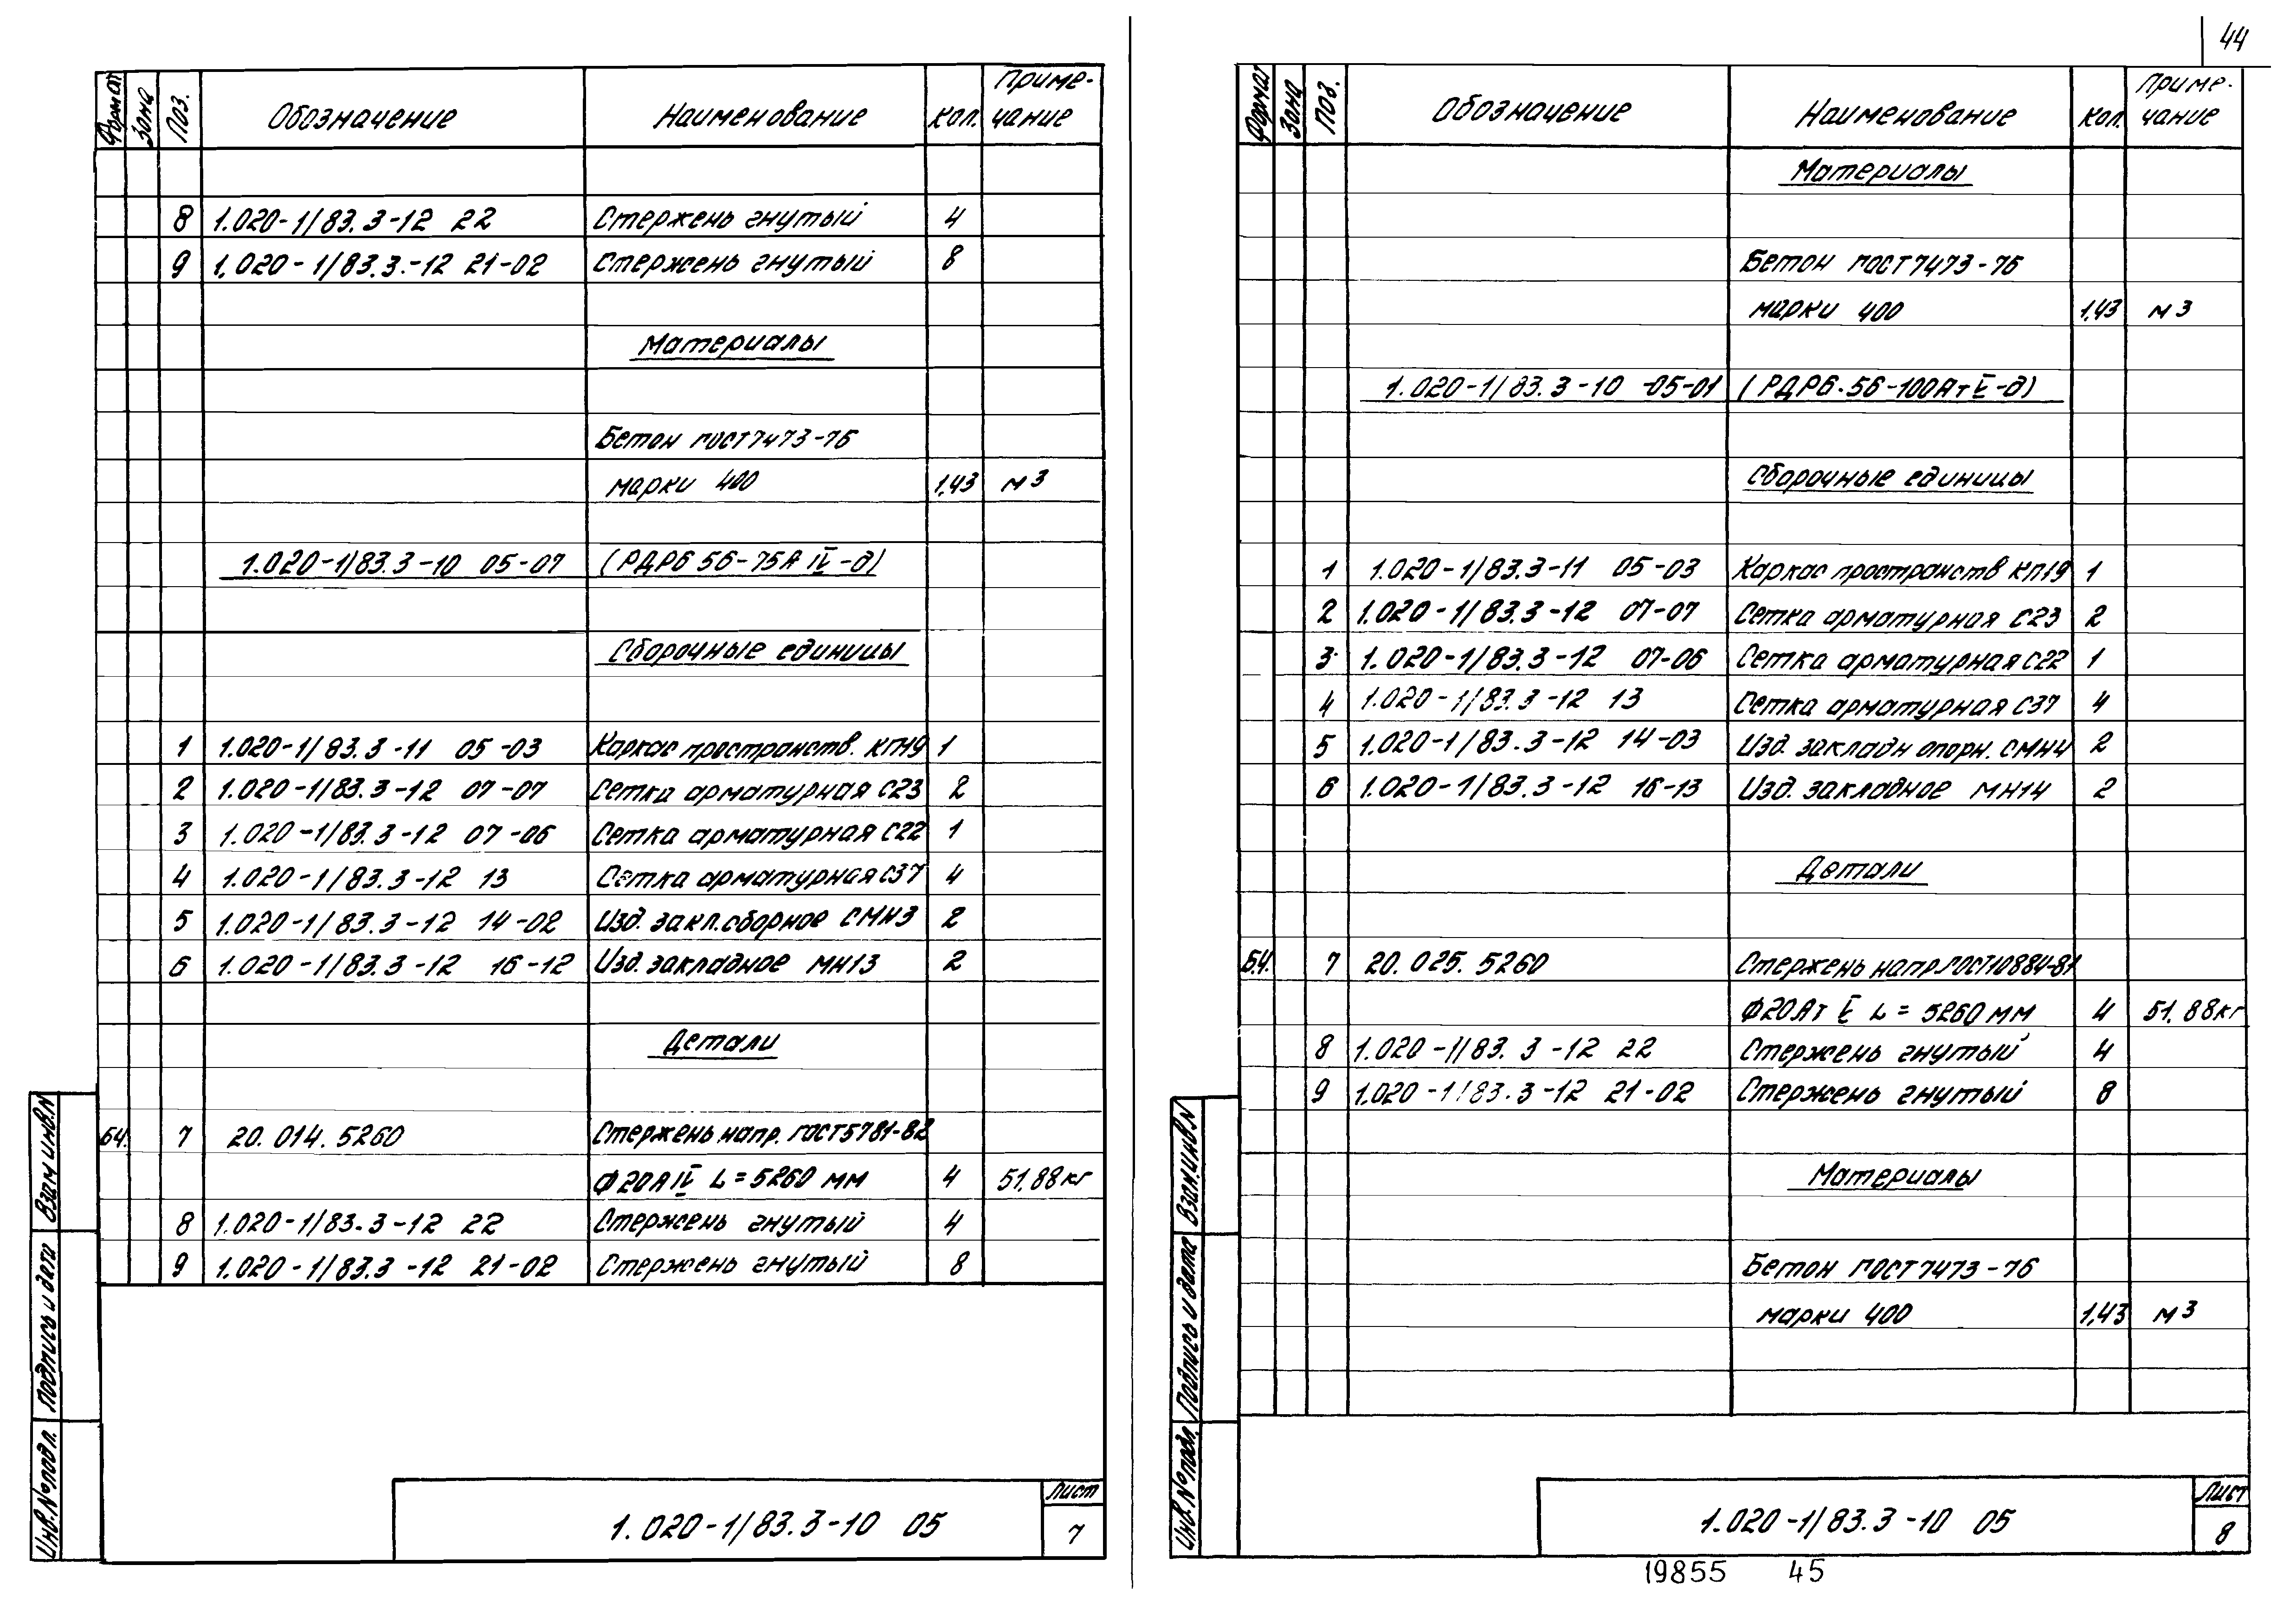 44
Формат Зона Поз. Обозначение Наименование Кол. Приме-
чание
8 1.020-1/83.3-12 22 Стержень гнутый 4
9 1.020-1/83.3-12 21-02 Стержень гнутый 8
Материалы
Бетон ГОСТ 7473-76
марки 400 1,43 м3
1.020-1/83.3-10 05-07 (РДР6 56-75А IV-д)
Сборочные единицы
1 1.020-1/83.3-11 05-03 Каркас пространств. КП19 1
2 1.020-1/83.3-12 07-07 Сетка арматурная С23 2
3 1.020-1/83.3-12 07-06 Сетка арматурная С22 1
4 1.020-1/83.3-12 13 Сетка арматурная С37 4
5 1.020-1/83.3-12 14-02 Изд. закл. сборное СМН3 2
6 1.020-1/83.3-12 16-12 Изд. закладное МН13 2
Детали
БЧ. 7 20.014.5260 Стержень напр. ГОСТ 5781-82
Ф20АIV L=5260 мм 4 51,88кг
8 1.020-1/83.3-12 22 Стержень гнутый 4
9 1.020-1/83.3-12 21-02 Стержень гнутый 8
Взам инв.N
Подпись и дата
Инв.№ подл.
1.020-1/83.3-10 05
Лист
7
Формат Зона Поз. Обозначение Наименование Кол. Приме-
чание
Материалы
Бетон ГОСТ 7473-76
марки 400 1,43 м3
1.020-1/83.3-10 -05-01 (РДР6.56-100АтV-д)
Сборочные единицы
1 1.020-1/83.3-11 05-03 Каркас пространств КП19 1
2 1.020-1/83.3-12 07-07 Сетка арматурная С23 2
3 1.020-1/83.3-12 07-06 Сетка арматурная С22 1
4 1.020-1/83.3-12 13 Сетка арматурная С37 4
5 1.020-1/83.3-12 14-03 Изд. закладн опорн. СМН4 2
6 1.020-1/83.3-12 16-13 Изд. закладное МН14 2
Детали
БЧ. 7 20.025.5260 Стержень напр ГОСТ 10884-81
Ф20Ат V L=5260 мм 4 51,88кг
8 1.020-1/83.3-12 22 Стержень гнутый 4
9 1.020-1/83.3-12 21-02 Стержень гнутый 8
Материалы
Бетон ГОСТ 7473-76
марки 400 1,43 м3
Взам.инв.N
Подпись и дата
Инв.№ подл.
1.020-1/83.3-10 05
Лист
8
19855 45